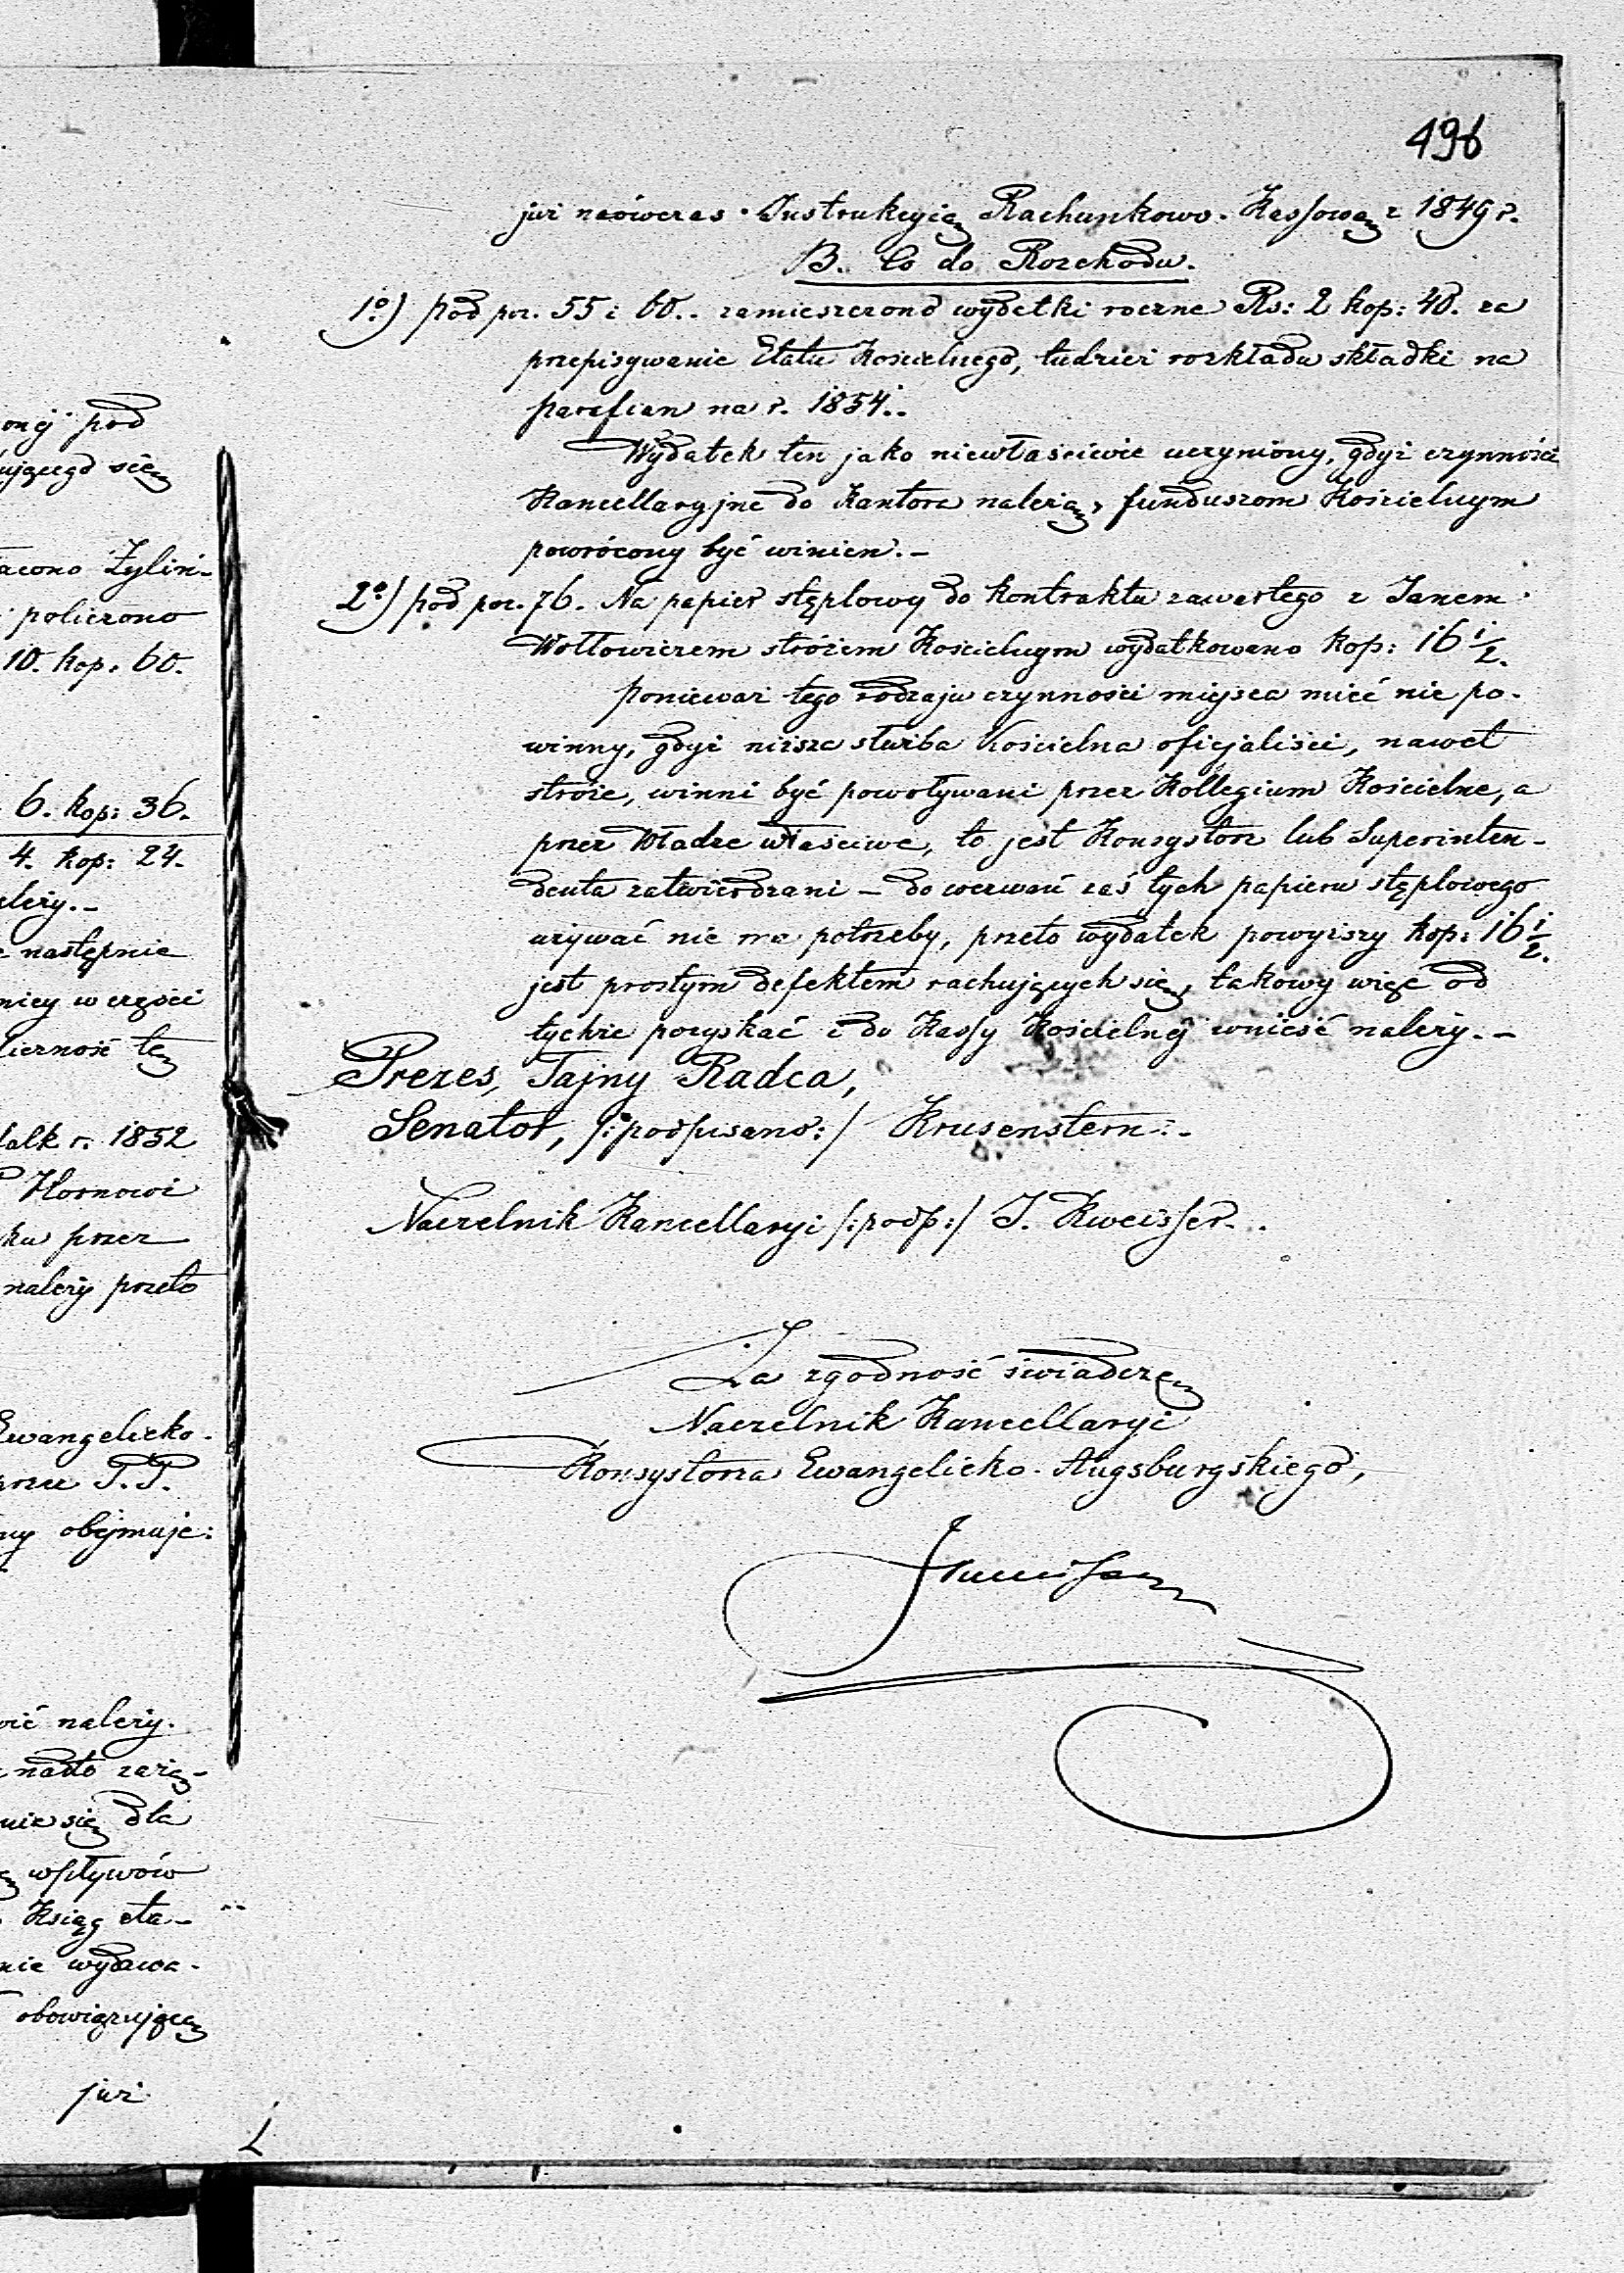 onéj pod
ującego się
acono Żyliń-
policzono
10. kop. 60.
6. kop: 36.
4. kop: 24.
należy.-
następnie
nicy w części
tę
r. 1852
Hornowi
ku przez
należy przeto
Ewangelicko-
przez P.P.
obejmuje:
należy.
nadto
nie się dla
wpływów
Ksiąg eta-
nie wydawa-
obowiązującą
już
496
już naówczas Instrukcyią Rachunkowo-Kassową z 1849 r.
B. Co do Rozchodu.
1º) pod poz. 55 i 60.. zamieszczono wydatki roczne Rs: 2 kop: 40. za
przepisywanie Etatu Kościelnego, tudzież rozkładu składki na
parafian na r. 1854..
Wydatek ten jako niewłaściwie uczyniony, gdyż czynności
Kancellaryjne do Kantora należą, funduszom Kościelnym
powrócony być winien.-
2º) pod poz. 76. Na papier stęplowy do Kontraktu zawartego z Janem
Wołłowiczem stróżem Kościelnym wydatkowano kop: 16 1/2.
Ponieważ tego rodzaju czynności miejsca mieć nie po-
winny, gdyż niższa służba Kościelna oficjaliści, nawet
stróże, winni być powoływani przez Kollegium Kościelne, a
przez Władze właściwe, to jest Konsystorz lub Superinten-
denta zatwierdzani - do wezwań zaś tych papieru stęplowego
używać nie ma potrzeby, przeto wydatek powyższy kop: 16 1/2.
jest prostym defektem rachujących się, takowy więc od
tychże pozyskać i do Kassy Kościelnéj wnieść należy.-
Prezes, Tajny Radca,
Senator, /:podpisano:/ Krusenstern.-
Naczelnik Kancellaryi /:podp:/ J. Kweisser..
Za zgodność świadczę
Naczelnik Kancellaryi
Konsystorza Ewangelicko-Augsburgskiego,